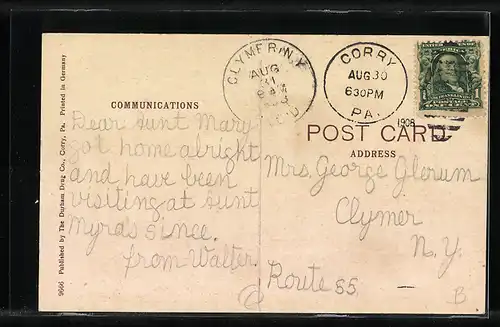 CLYMER, N.Y.
AUG
31
8 AM
REC'D
CORRY
AUG 30
630PM
PA.
1908
UNITED STATES
1
9666 Published by The Durham Drug Co., Corry, Pa. Printed in Germany
COMMUNICATIONS
POST CARD
ADDRESS
Dear Aunt Mary
got home alright
and have been
visiting at Aunt
Myrds since.
from Walter.
Mrs. George Glerum
Clymer
N. Y.
Route 85
B